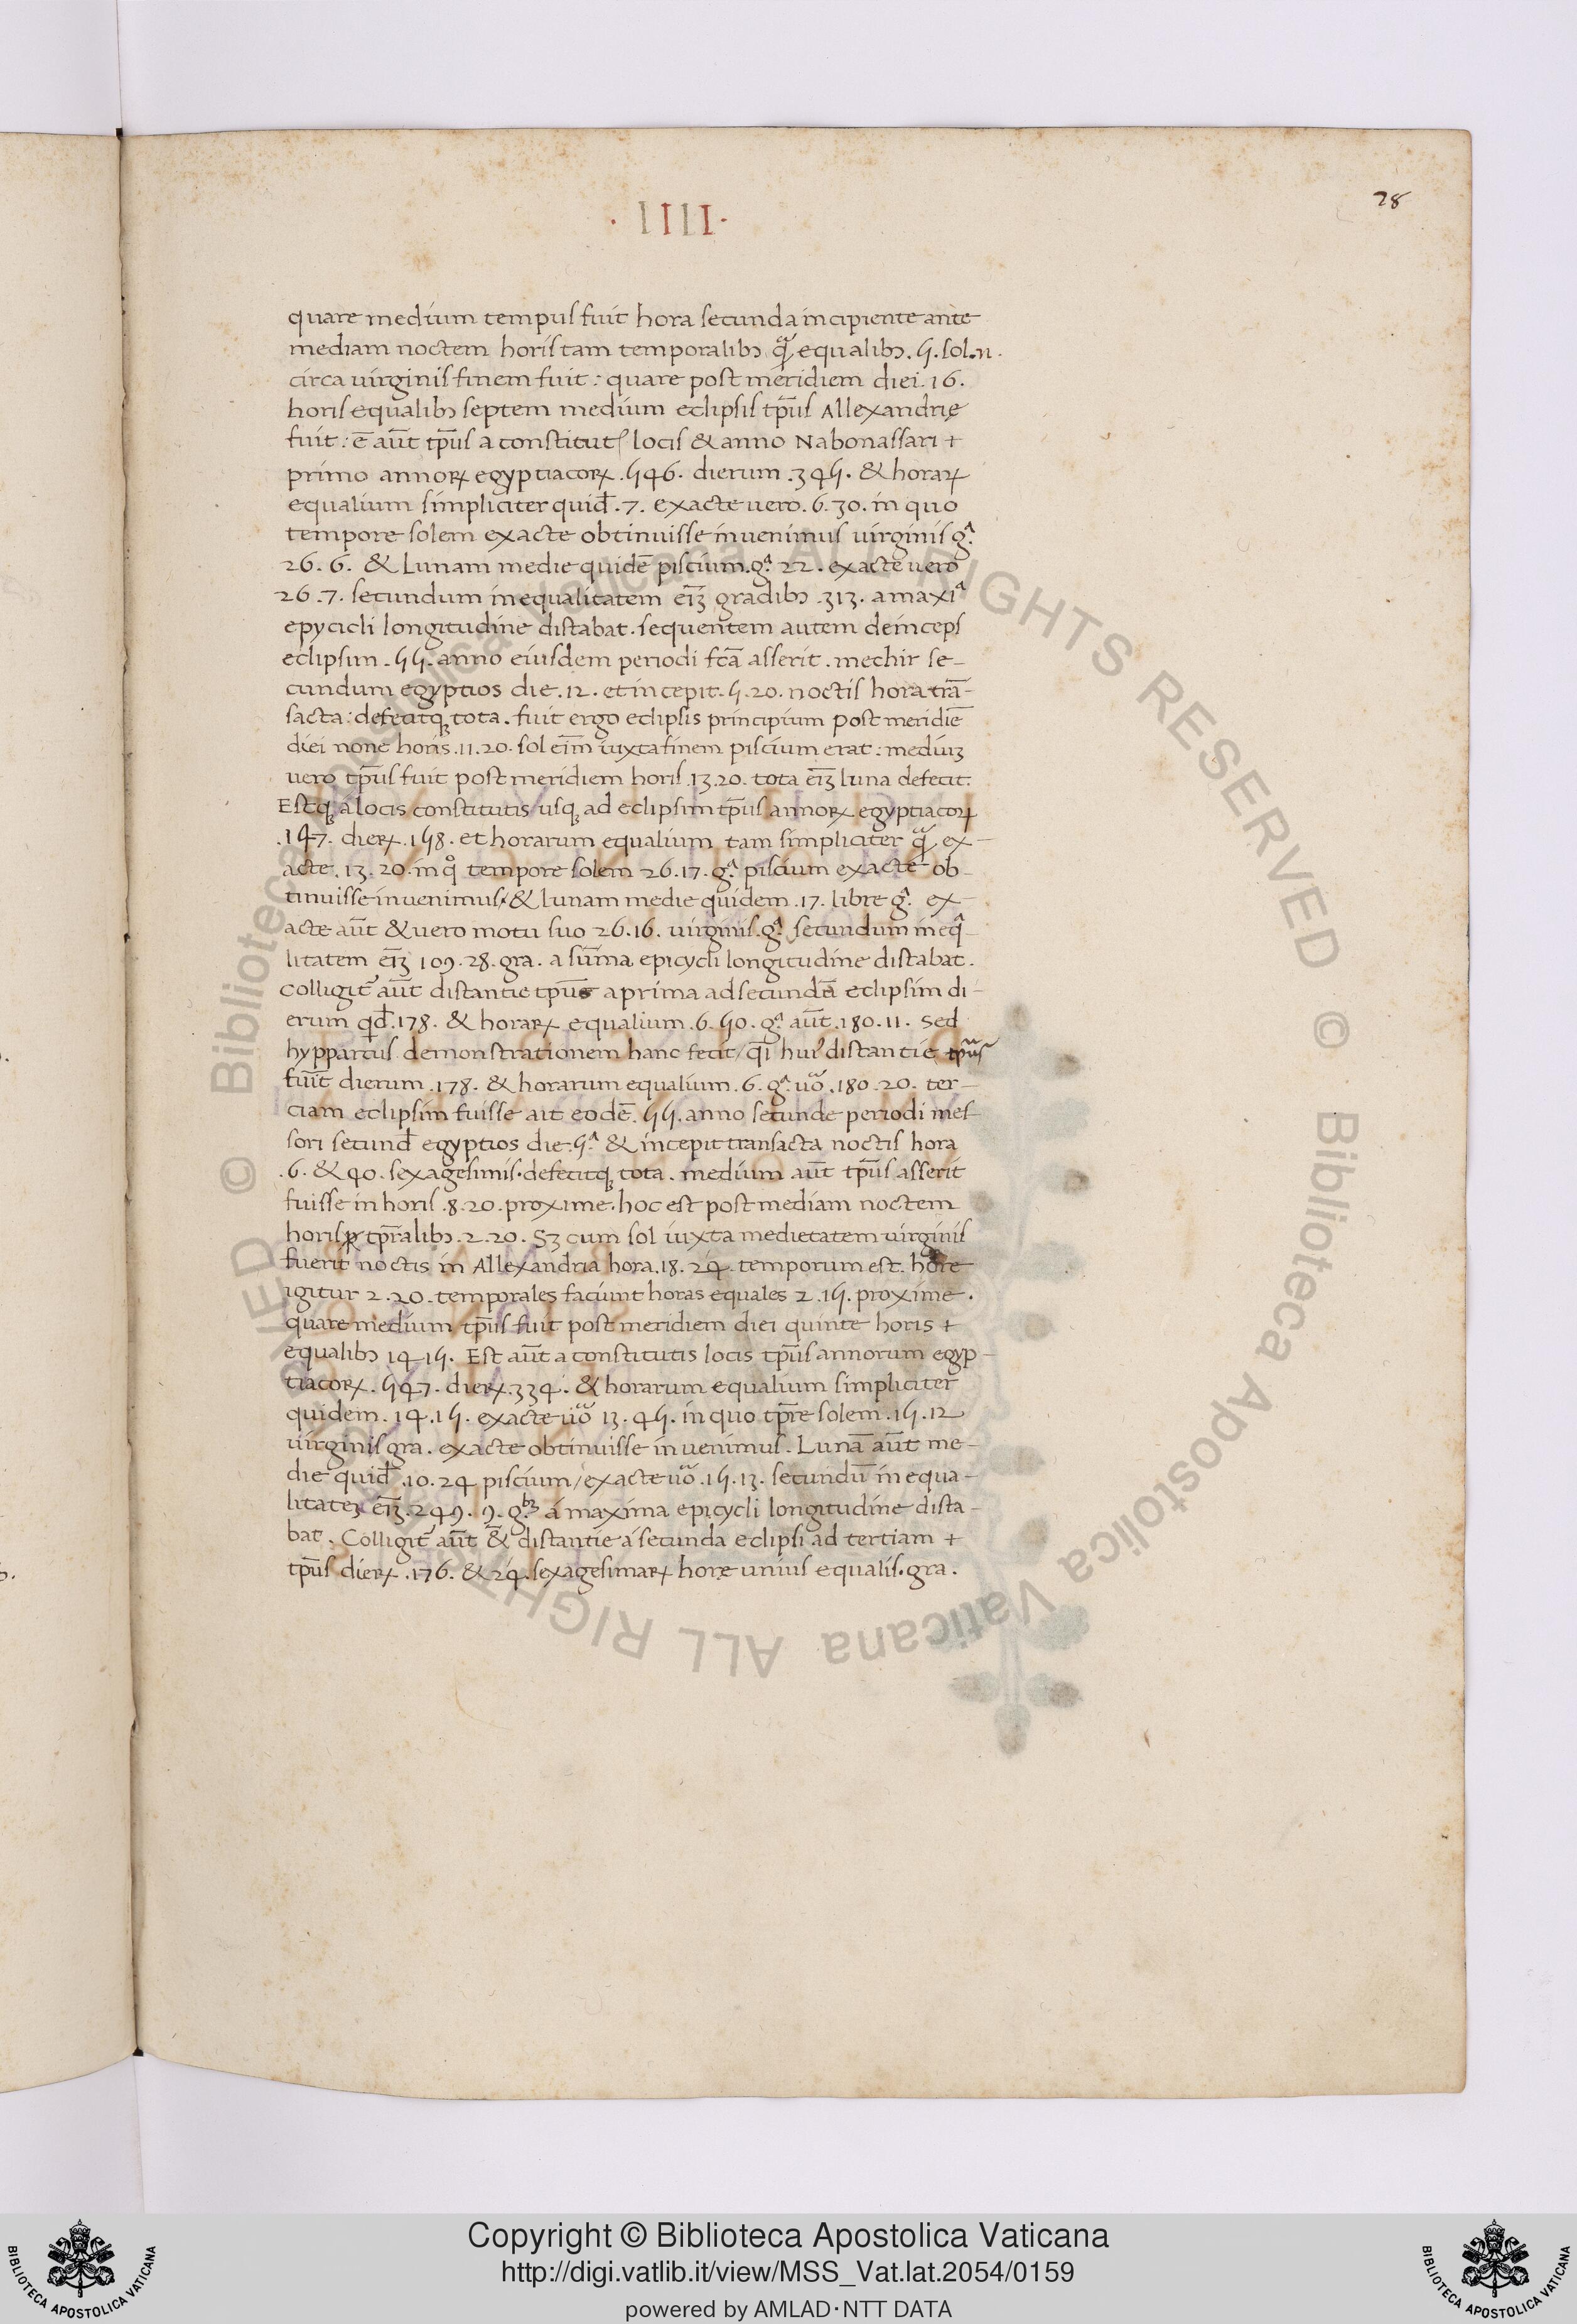 · IIII ·
28
quare medium tempus fuit hora secunda incipiente ante
mediam noctem horis tam temporalibꝫ qᷓ equalibꝫ. 5. sol. n.
circa uirginis finem fuit: quare post meridiem diei. 16.
horis equalibꝫ septem medium eclipsis tp̄us Allexandrię
fuit: ē aūt tp̄us a constitut locis & anno Nabonassari +
primo annoꝝ egyptiacoꝝ. 546. dierum. 345. & horaꝝ
equalium simpliciter quid̄. 7. exacte uero. 6. 30. in quo
tempore solem exacte obtinuisse inuenimus uirginis gᵃ.
26. 6. & Lunam medie quidē piscium. gᵃ. 22. exacte uero
26. 7. secundum inequalitatem eīꝫ gradibꝫ. 313. a maxiᵃ
epycicli longitudine distabat. sequentem autem deinceps
eclipsim. 55. anno eiusdem periodi fcā asserit. mechir se-
cundum egyptios die. 12. et incepit. 5. 20. noctis hora trā-
sacta: defecitqꝫ tota. fuit ergo eclipsis principium post meridiē
diei none horis. 11. 20. sol eīm iuxta finem piscium erat: mediuꝫ
uero tp̄us fuit post meridiem horis. 13. 20. tota eīꝫ luna defecit.
Estqꝫ a locis constitutis usqꝫ ad eclipsim tp̄us annoꝝ egyptiacoꝝ
. 147. dieꝝ. 158. et horarum equalium tam simpliciter qᷓ ex-
acte. 13. 20. in qͦ tempore solem 26. 17. gᵃ. piscium exacte ob-
tinuisse inuenimus/ & lunam medie quidem. 17. libre gᵃ. ex-
acte aūt & uero motu suo 26. 16. uirginis. gᵃ. secundum ineqᵃ-
litatem eīꝫ 109. 28. gra. a sūma epicycli longitudine distabat.
Colligit᷑ aūt distantie tpūs a prima ad secundā eclipsim di-
erum qd̄. 178. & horaꝝ equalium. 6. 50. gᵃ. aūt. 180. 11. Sed
hyppartus demonstrationem hanc fecit/ qī huiꝰ distantie tp̄us
fuit dierum. 178. & horarum equalium. 6. gᵃ. uō. 180. 20. ter-
ciam eclipsim fuisse ait eodē. 55. anno secunde periodi mes-
sori secund̄ egyptios die. 5ᵃ. & incepit transacta noctis hora
. 6. & 40. sexagesimis. defecitqꝫ tota. medium aūt tp̄us asserit
fuisse in horis. 8. 20. proxime. hoc est post mediam noctem
horis tp̄ralibꝫ. 2. 20. Sꝫ cum sol iuxta medietatem uirginis
fuerit noctis in Allexandria hora. 18. 24. temporum est. hore
igitur 2. 20. temporales faciunt horas equales 2. 15. proxime.
quare medium tp̄us fuit post meridiem diei quinte horis +
equalibꝫ 14 15. Est aūt a constitutis locis tp̄us annorum egyp-
tiacoꝝ. 547. dieꝝ. 334. & horarum equalium simpliciter
quidem. 14. 15. exacte uō 13. 45. in quo tp̄re solem. 15. 12
uirginis gra. exacte obtinuisse inuenimus. Lunā aūt me-
die quid̄. 10. 24 piscium/ exacte uō. 15. 13. secundū inequa-
litateꝫ eīꝫ. 249. 9. gᵇꝫ. a maxima epicycli longitudine dista-
bat. Colligit᷑ aūt & distantie a secunda eclipsi ad tertiam +
tp̄us dieꝝ. 176. & 24. sexagesimaꝝ hore unius equalis. gra.
© Biblioteca Apostolica Vaticana ALL RIGHTS RESERVED © Biblioteca Apostolica Vaticana ALL RIGHTS RESERVED
Copyright © Biblioteca Apostolica Vaticana
http://digi.vatlib.it/view/MSS_Vat.lat.2054/0159
powered by AMLAD·NTT DATA
BIBLIOTECA APOSTOLICA VATICANA
BIBLIOTECA APOSTOLICA VATICANA